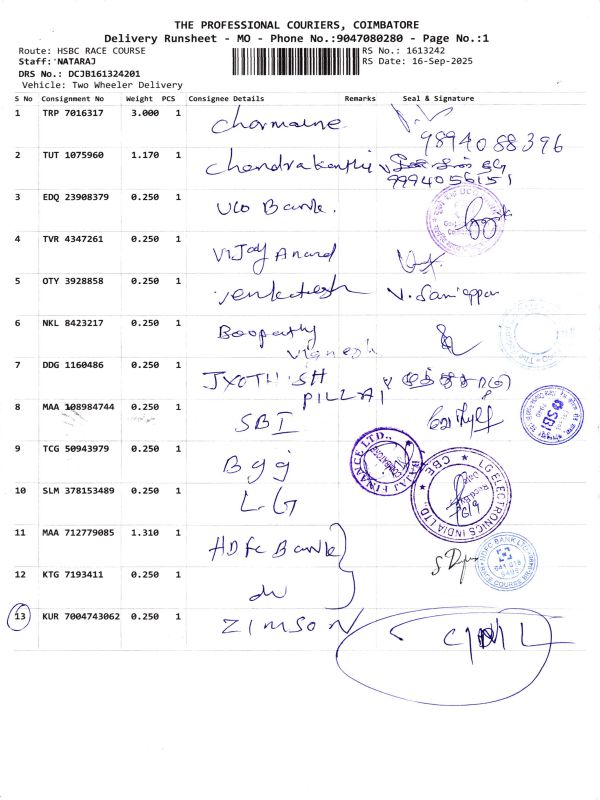 THE PROFESSIONAL COURIERS, COIMBATORE
Delivery Runsheet - MO - Phone No.:9047080280 - Page No.:1
Route: HSBC RACE COURSE RS No.: 1613242
Staff: NATARAJ RS Date: 16-Sep-2025
DRS No.: DCJB161324201
Vehicle: Two Wheeler Delivery
S No Consignment No Weight PCS Consignee Details Remarks Seal & Signature
1 TRP 7016317 3.000 1 Charmaine
9894088396
2 TUT 1075960 1.170 1 Chandrakanthi
9994056151
3 EDQ 23908379 0.250 1 UCO Bank.
4 TVR 4347261 0.250 1 Vijay Anand
5 OTY 3928858 0.250 1 Venkatesh V. Saniappan
6 NKL 8423217 0.250 1 Boopathy
Vignesh
7 DDG 1160486 0.250 1 JYOTHISH
PILLAI
8 MAA 108984744 0.250 1 SBI
SBI
9 TCG 50943979 0.250 1 Bajaj
BAJAJ FINANCE LTD.
10 SLM 378153489 0.250 1 LG
LG ELECTRONICS INDIA LTD. CBE
11 MAA 712779085 1.310 1 HDFC Bank
HDFC BANK LTD
641 018
RACE COURSE BRANCH
12 KTG 7193411 0.250 1 do
13 KUR 7004743062 0.250 1 ZIMSON